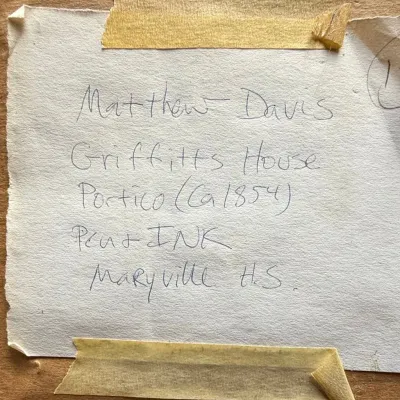 Matthew Davis
Griffitts House
Portico (Ca 1854)
Pen + INK
Maryville H.S.